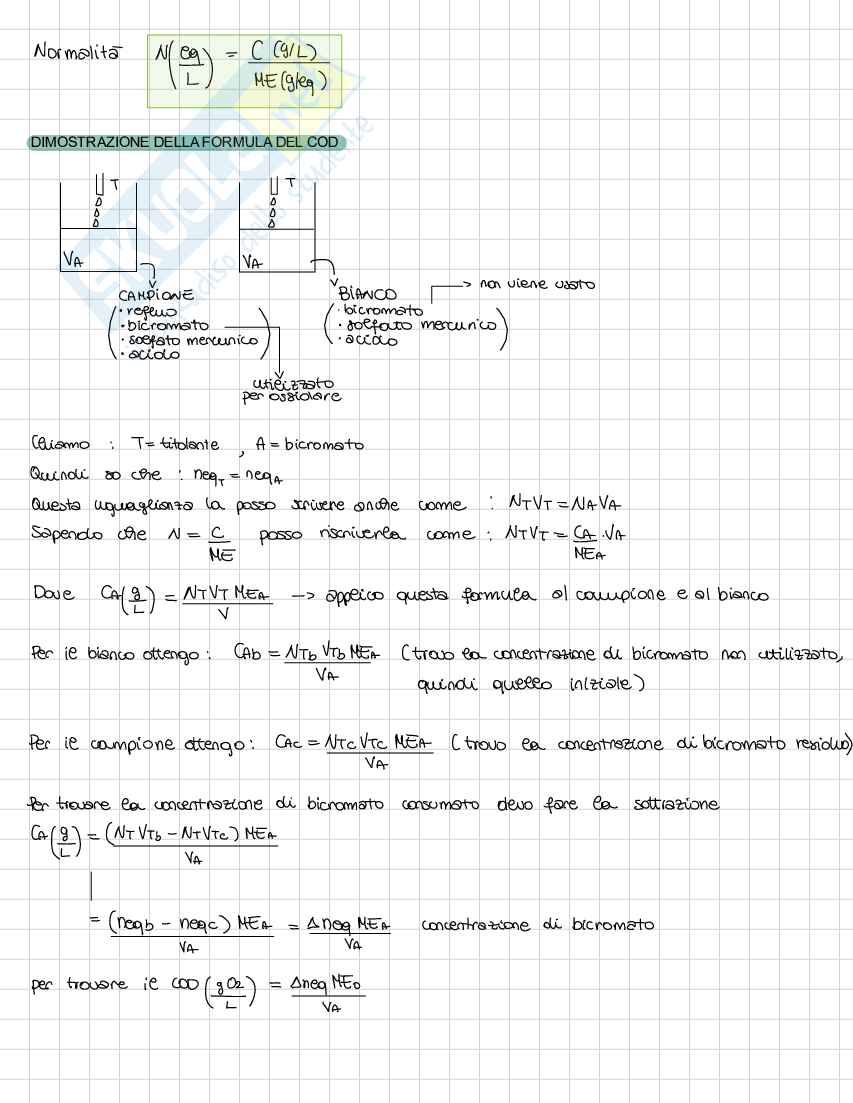 Normalità N(eq/L) = C (g/L) / ME (g/eq)
DIMOSTRAZIONE DELLA FORMULA DEL COD
T T
VA VA
CAMPIONE
· refluo
· bicromato
· solfato mercurico
· acido
BIANCO
· bicromato
· solfato mercurico
· acido
→ non viene usato
utilizzato
per ossidare
Chiamo : T= titolante , A = bicromato
Quindi so che : neqT = neqA
Questa uguaglianza la posso scrivere anche come : NTVT = NAVA
Sapendo che N = C/ME posso riscriverla come : NTVT = CA/MEA · VA
Dove CA(g/L) = NTVT MEA / V → applico questa formula al campione e al bianco
Per il bianco ottengo : CAb = NTb VTb MEA / VA (trovo la concentrazione di bicromato non utilizzato,
quindi quello iniziale)
Per il campione ottengo : CAc = NTc VTc MEA / VA (trovo la concentrazione di bicromato residuo)
Per trovare la concentrazione di bicromato consumato devo fare la sottrazione
CA(g/L) = (NT VTb - NT VTc) MEA / VA
= (neqb - neqc) MEA / VA = Δneq MEA / VA concentrazione di bicromato
per trovare il COD (gO2/L) = Δneq MEO / VA
SKUOLA.net
paradiso dello studente